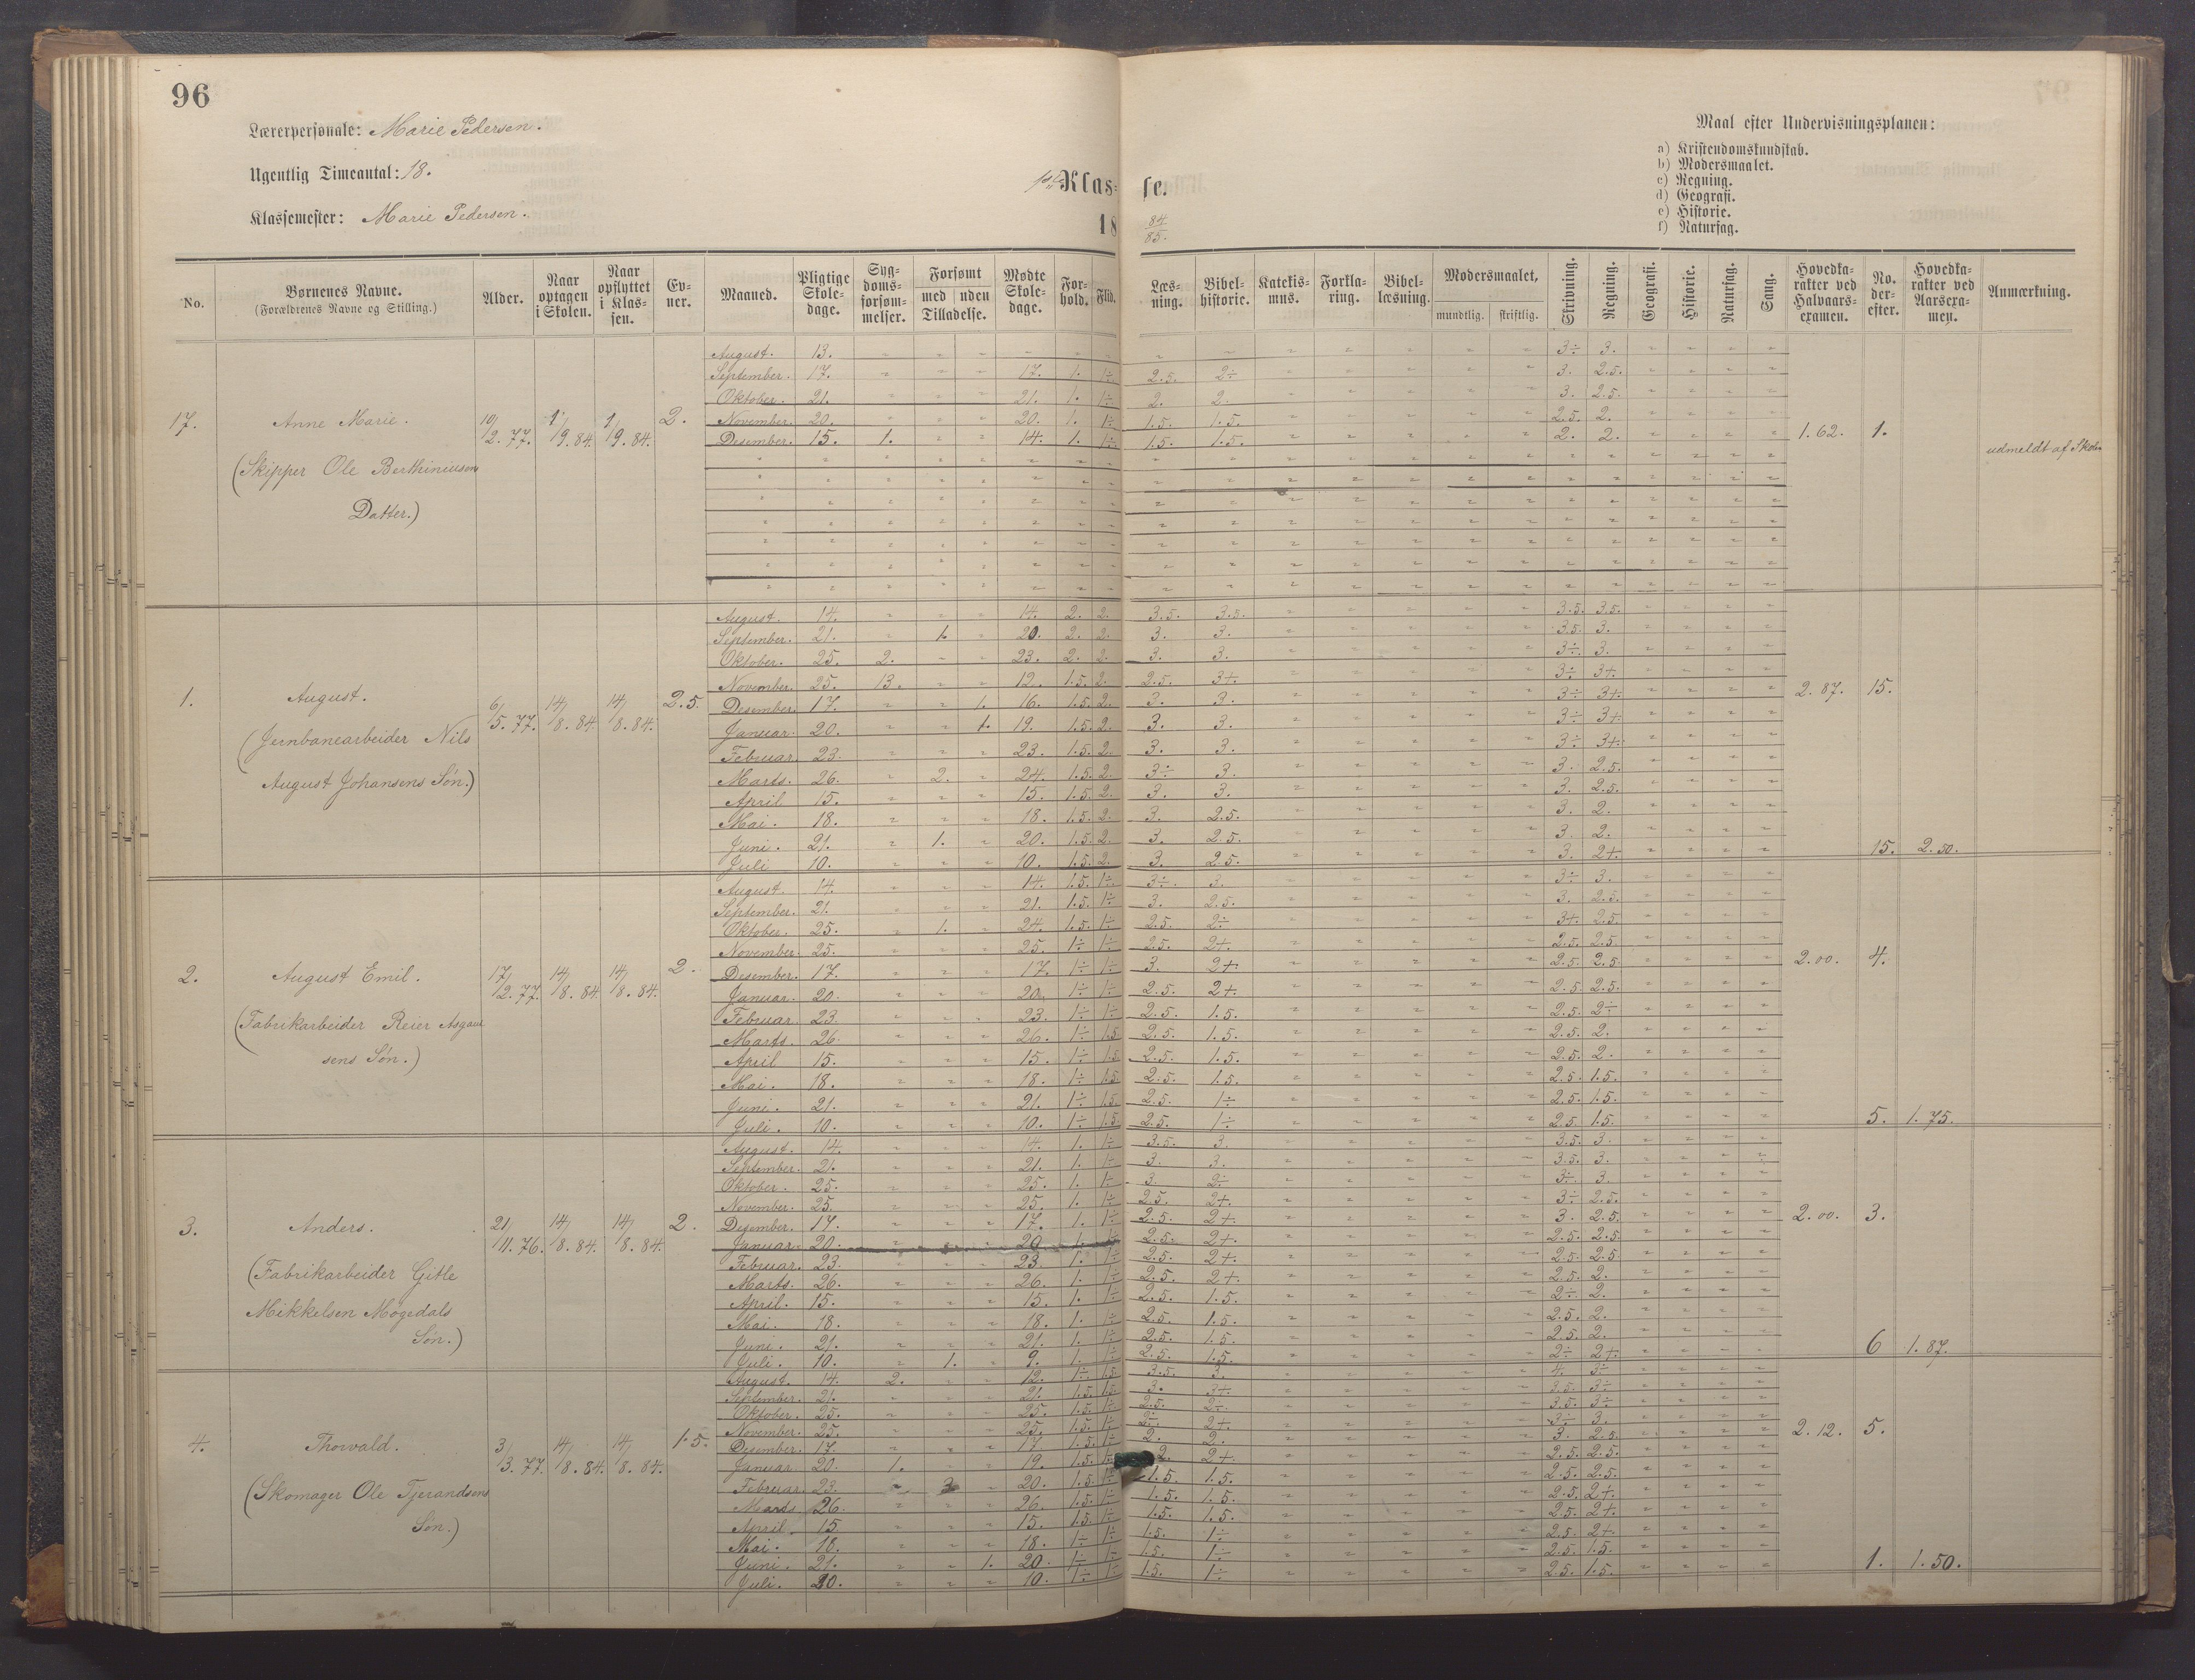 96
Lærerpersonale: Marie Pedersen.
Ugentlig Timeantal: 18.
Klassemester: Marie Pedersen.
Klasse.
18 84/85.
Maal efter Undervisningsplanen:
a) Kristendomskundskab.
b) Modersmaalet.
c) Regning.
d) Geografi.
e) Historie.
f) Naturfag.
No. | Børnenes Navne. (Forældrenes Navne og Stilling.) | Alder. | Naar optagen i Skolen. | Naar opflyttet i Klassen. | Evner. | Maaned. | Pligtige Skoledage. | Sygdomsforsømmelser. | Forsømt med uden Tilladelse. | Mødte Skoledage. | Forhold. | Flid. | Læsning. | Bibelhistorie. | Katekismus. | Forklaring. | Bibellæsning. | Modersmaalet, mundtlig. skriftlig. | Skrivning. | Regning. | Geografi. | Historie. | Naturfag. | Sang. | Hovedkarakter ved Halvaarsexamen. | No. derefter. | Hovedkarakter ved Aarsexamen. | Anmærkning.
17. Anne Marie. 10/2. 77. 1/9. 84. 1/9. 84. 2.
(Skipper Ole Berthiniusens
Datter.)
August. 13. 3÷ 3.
September. 17. 17. 1. 1÷ 2.5. 2÷ 3. 2.5.
Oktober. 21. 21. 1. 1÷ 2. 2. 3. 2.5.
November. 20. 20. 1. 1÷ 1.5. 1.5. 2.5. 2.
Desember. 15. 1. 14. 1. 1÷ 1.5. 1.5. 2. 2.
1.62. 1. udmeldt af Skolen
1. August. 6/5. 77. 14/8. 84. 14/8. 84. 2.5.
(Jernbanearbeider Nils
August Johansens Søn.)
August. 14. 14. 2. 2. 3.5. 3.5. 3.5. 3.5.
September. 21. 1. 20. 2. 2. 3. 3. 3.5. 3.
Oktober. 25. 2. 23. 2. 2. 3. 3. 3÷ 3.
November. 25. 13. 12. 1.5. 2. 2.5. 3+. 3÷ 3+
Desember. 17. 1. 16. 1.5. 2. 3. 3. 3÷ 3+.
Januar. 20. 1. 19. 1.5. 2. 3. 3. 3÷ 3+.
Februar. 23. 23. 1.5. 2. 3. 3. 3÷ 3+.
Marts. 26. 2. 24. 1.5. 2. 3÷ 3. 3. 2.5.
April 15. 15. 1.5. 2. 3. 3. 3. 2.5.
Mai. 18. 18. 1.5. 2. 3. 2.5. 3. 2.
Juni. 21. 1. 20. 1.5. 2. 3. 2.5. 3. 2.
Juli 10. 10. 1.5. 2. 3. 2.5. 3. 2+.
2.87. 15.
15. 2.50.
2. August Emil. 17/2. 77. 14/8. 84. 14/8. 84. 2.
(Fabrikarbeider Reier Asgaut
sens Søn.)
August. 14. 14. 1.5. 1÷ 3÷. 3. 3÷ 3.
September. 21. 21. 1.5. 1÷ 3. 2.5. 3. 2.5.
Oktober. 25. 1. 24. 1.5. 1÷ 2.5. 2÷ 3+. 2.5.
November. 25. 25. 1÷ 1÷ 2.5. 2+. 2.5. 2.5.
Desember. 17. 17. 1÷ 1÷ 3. 2+. 2.5. 2.5.
Januar. 20. 20. 1÷ 1÷ 2.5. 2+. 2.5. 2.5.
Februar. 23. 23. 1÷ 1÷ 2.5. 1.5. 2.5. 2÷
Marts. 26. 26. 1÷ 1.5. 2.5. 1.5. 2.5. 2.
April 15. 15. 1÷ 1.5. 2.5. 1.5. 2.5. 2.
Mai. 18. 18. 1÷ 1.5. 2.5. 1.5. 2.5. 1.5.
Juni. 21. 21. 1÷ 1.5. 2.5. 1÷ 2.5. 1.5.
Juli. 10. 10. 1÷ 1.5. 2.5. 1÷ 2.5. 1.5.
2.00. 4.
5. 1.75.
3. Anders. 21/11. 76. 14/8. 84. 14/8. 84. 2.
(Fabrikarbeider Gitle
Mikkelsen Møgedals
Søn.)
August. 14. 14. 1. 1÷ 3.5. 3. 3.5. 3.
September. 21. 21. 1. 1÷ 3. 3. 3.5. 3.
Oktober. 25. 25. 1. 1÷ 3. 2÷ 3÷ 3.
November. 25. 25. 1. 1÷ 2.5. 2+. 3÷ 2.5.
Desember. 17. 17. 1. 1÷ 2.5. 2+. 3. 2.5.
Januar. 20. 20. 1. 1÷ 2.5. 2+. 2.5. 2.5.
Februar. 23. 23. 1. 1÷ 2.5. 2+. 2.5. 2.5.
Marts. 26. 26. 1. 1÷ 2.5. 2+. 2.5. 2.
April. 15. 15. 1. 1÷ 2.5. 1.5. 2÷ 2.
Mai. 18. 18. 1. 1÷ 2.5. 1.5. 2.5. 2.
Juni. 21. 21. 1. 1÷ 2.5. 1.5. 2.5. 2.
Juli. 10. 1. 9. 1. 1÷ 2.5. 1.5. 2÷ 2+.
2.00. 3.
6 1.87.
4. Thorvald. 3/3. 77. 14/8. 84. 14/8. 84. 1.5.
(Skomager Ole Tjerandsens
Søn.)
August. 14. 2. 12. 1÷ 1.5. 3.5. 3. 4. 3÷
September. 21. 21. 1.5. 1.5. 3. 3+. 3.5. 3÷
Oktober. 25. 25. 1.5. 1÷ 2.5. 2÷ 3.5. 3÷
November. 25. 25. 1.5. 1÷ 2÷ 2+. 3÷ 3.
Desember. 17. 17 1.5. 1÷ 2. 2. 3. 2.5.
Januar. 20. 1. 19. 1.5. 2. 2+. 2.5. 2.5.
Februar. 23. 20. 1.5. 1÷ 1.5. 1.5. 2.5. 2.5.
Marts. 26. 26. 1.5. 1÷ 1.5. 1.5. 2.5. 2+.
April. 15 15. 1.5. 1÷ 1.5. 1.5. 2.5. 2+.
Mai. 18. 18. 1÷ 1÷ 1.5. 1÷ 2.5. 2+.
Juni. 21. 1. 20. 1÷ 1÷ 1.5. 1÷ 2.5. 1.5.
Juli. 10. 1÷ 1÷ 1.5. 1÷ 2.5. 1.5.
2.12. 5.
1. 1.50.